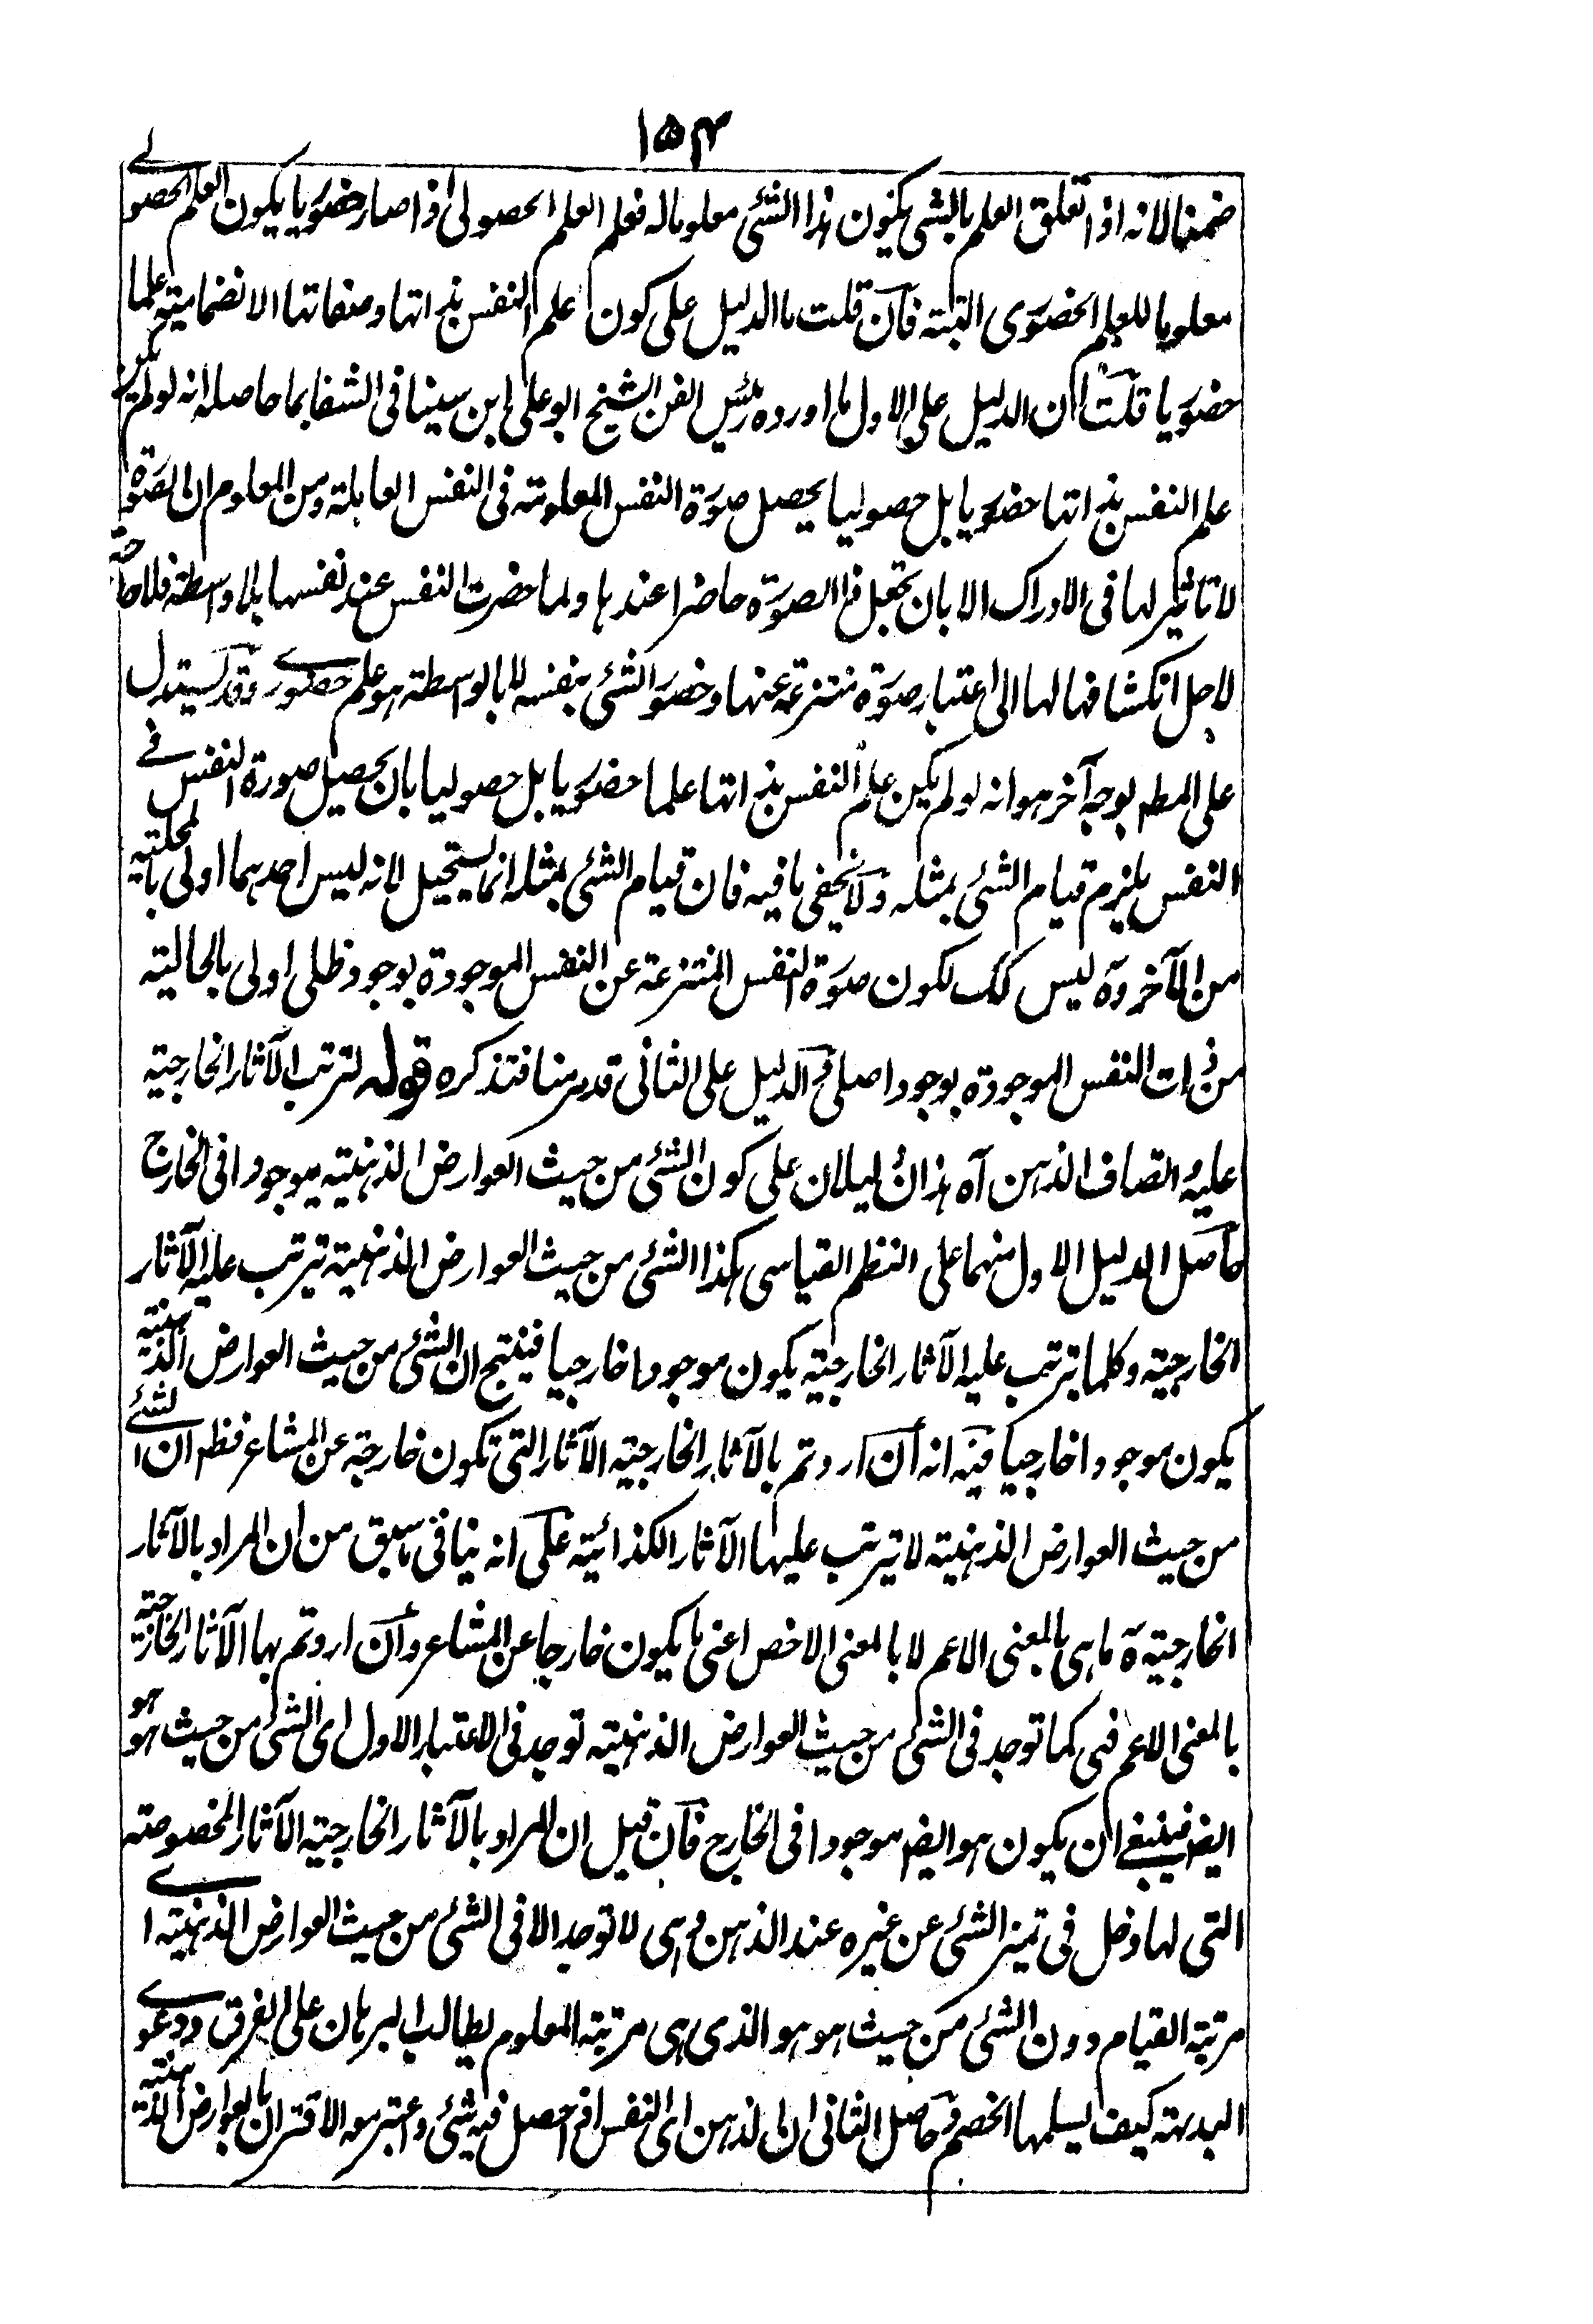 ١٥٤
ضمنا لانه اذا تعلق العلم بالشئ يكون هذا الشئ معلوما له فعلم العلم الحصولى اذا صار حضوريا يكون العلم الحصولے
معلوما للعلم الحضورى البتة فان قلت ما الدليل على كون علم النفس بذاتها وصفاتها الانضمامية علما
حضوريا قلت ان الدليل على الاول ما اورده رئيس الفن الشيخ ابو على ابن سينا فى الشفا بما حاصله انه لو لم يكن
علم النفس بذاتها حضوريا بل حصوليا يحصل صورة النفس المعلومة فى النفس العالمة ومن المعلوم ان الصورة
لا تاثير لها فى الادراك الا بان تجعل ذا الصورة حاضرا عندها ولما حضرت النفس عند نفسها بلا واسطة فلا حاجة
لاجل انكشافها لها الى اعتبار صورة منتزعة عنها وحضور الشئ بنفسه لا بالواسطة هو علم حضورے وقد يستدل
على المط بوجه آخر هو انه لو لم يكن علم النفس بذاتها علما حضوريا بل حصوليا بان يحصل صورة النفس فے
النفس يلزم قيام الشئ بمثله ولا يخفى ما فيه فان قيام الشئ بمثله انما يستحيل لانه ليس احدهما اولى بالمحلية
من الآخر وه ليس كك لكون صورة النفس المنتزعة عن النفس الموجودة بوجود ظلى اولى بالحالية
من ذات النفس الموجودة بوجود اصلى والدليل على الثانى قد مر منا فتذكره قوله لترتب الآثار الخارجية
عليه واتصاف الذهن آه هذان دليلان على كون الشئ من حيث العوارض الذهنية موجودا فى الخارج
حاصل الدليل الاول منهما على النظم القياسى هكذا الشئ من حيث العوارض الذهنية تترتب عليه الآثار
الخارجية وكلما يترتب عليه الآثار الخارجية يكون موجودا خارجيا فينتج ان الشئ من حيث العوارض الذهنية
يكون موجودا خارجيا فيه انه ان اردتم بالآثار الخارجية الآثار التى تكون خارجة عن المشاعر فظ ان الشئے
من حيث العوارض الذهنية لا يترتب عليها الآثار الكذائية على انه ينافى ما سبق من ان المراد بالآثار
الخارجية ه ما هى بالمعنى الاعم لا بالمعنى الاخص اعنى ما يكون خارجا عن المشاعر وان اردتم بها الآثار الخارجية
بالمعنى الاعم فهى كما توجد فى الشئ من حيث العوارض الذهنية توجد فى الاعتبار الاول اى الشئ من حيث هو هو
ايض فينبغے ان يكون هو ايض موجودا فى الخارج فان قيل ان المراد بالآثار الخارجية الآثار المخصوصة
التى لها دخل فى تميز الشئ عن غيره عند الذهن وهى لا توجد الا فى الشئ من حيث العوارض الذهنية اے
مرتبة القيام دون الشئ من حيث هو هو الذى هى مرتبة المعلوم يطالب البرهان على الفرق ودعوے
البديهة كيف يسلمها الخصم وحاصل الثانى ان الذهن اى النفس اذا حصل فيه شئ واعتبر معه الاقتران بالعوارض الذهنية